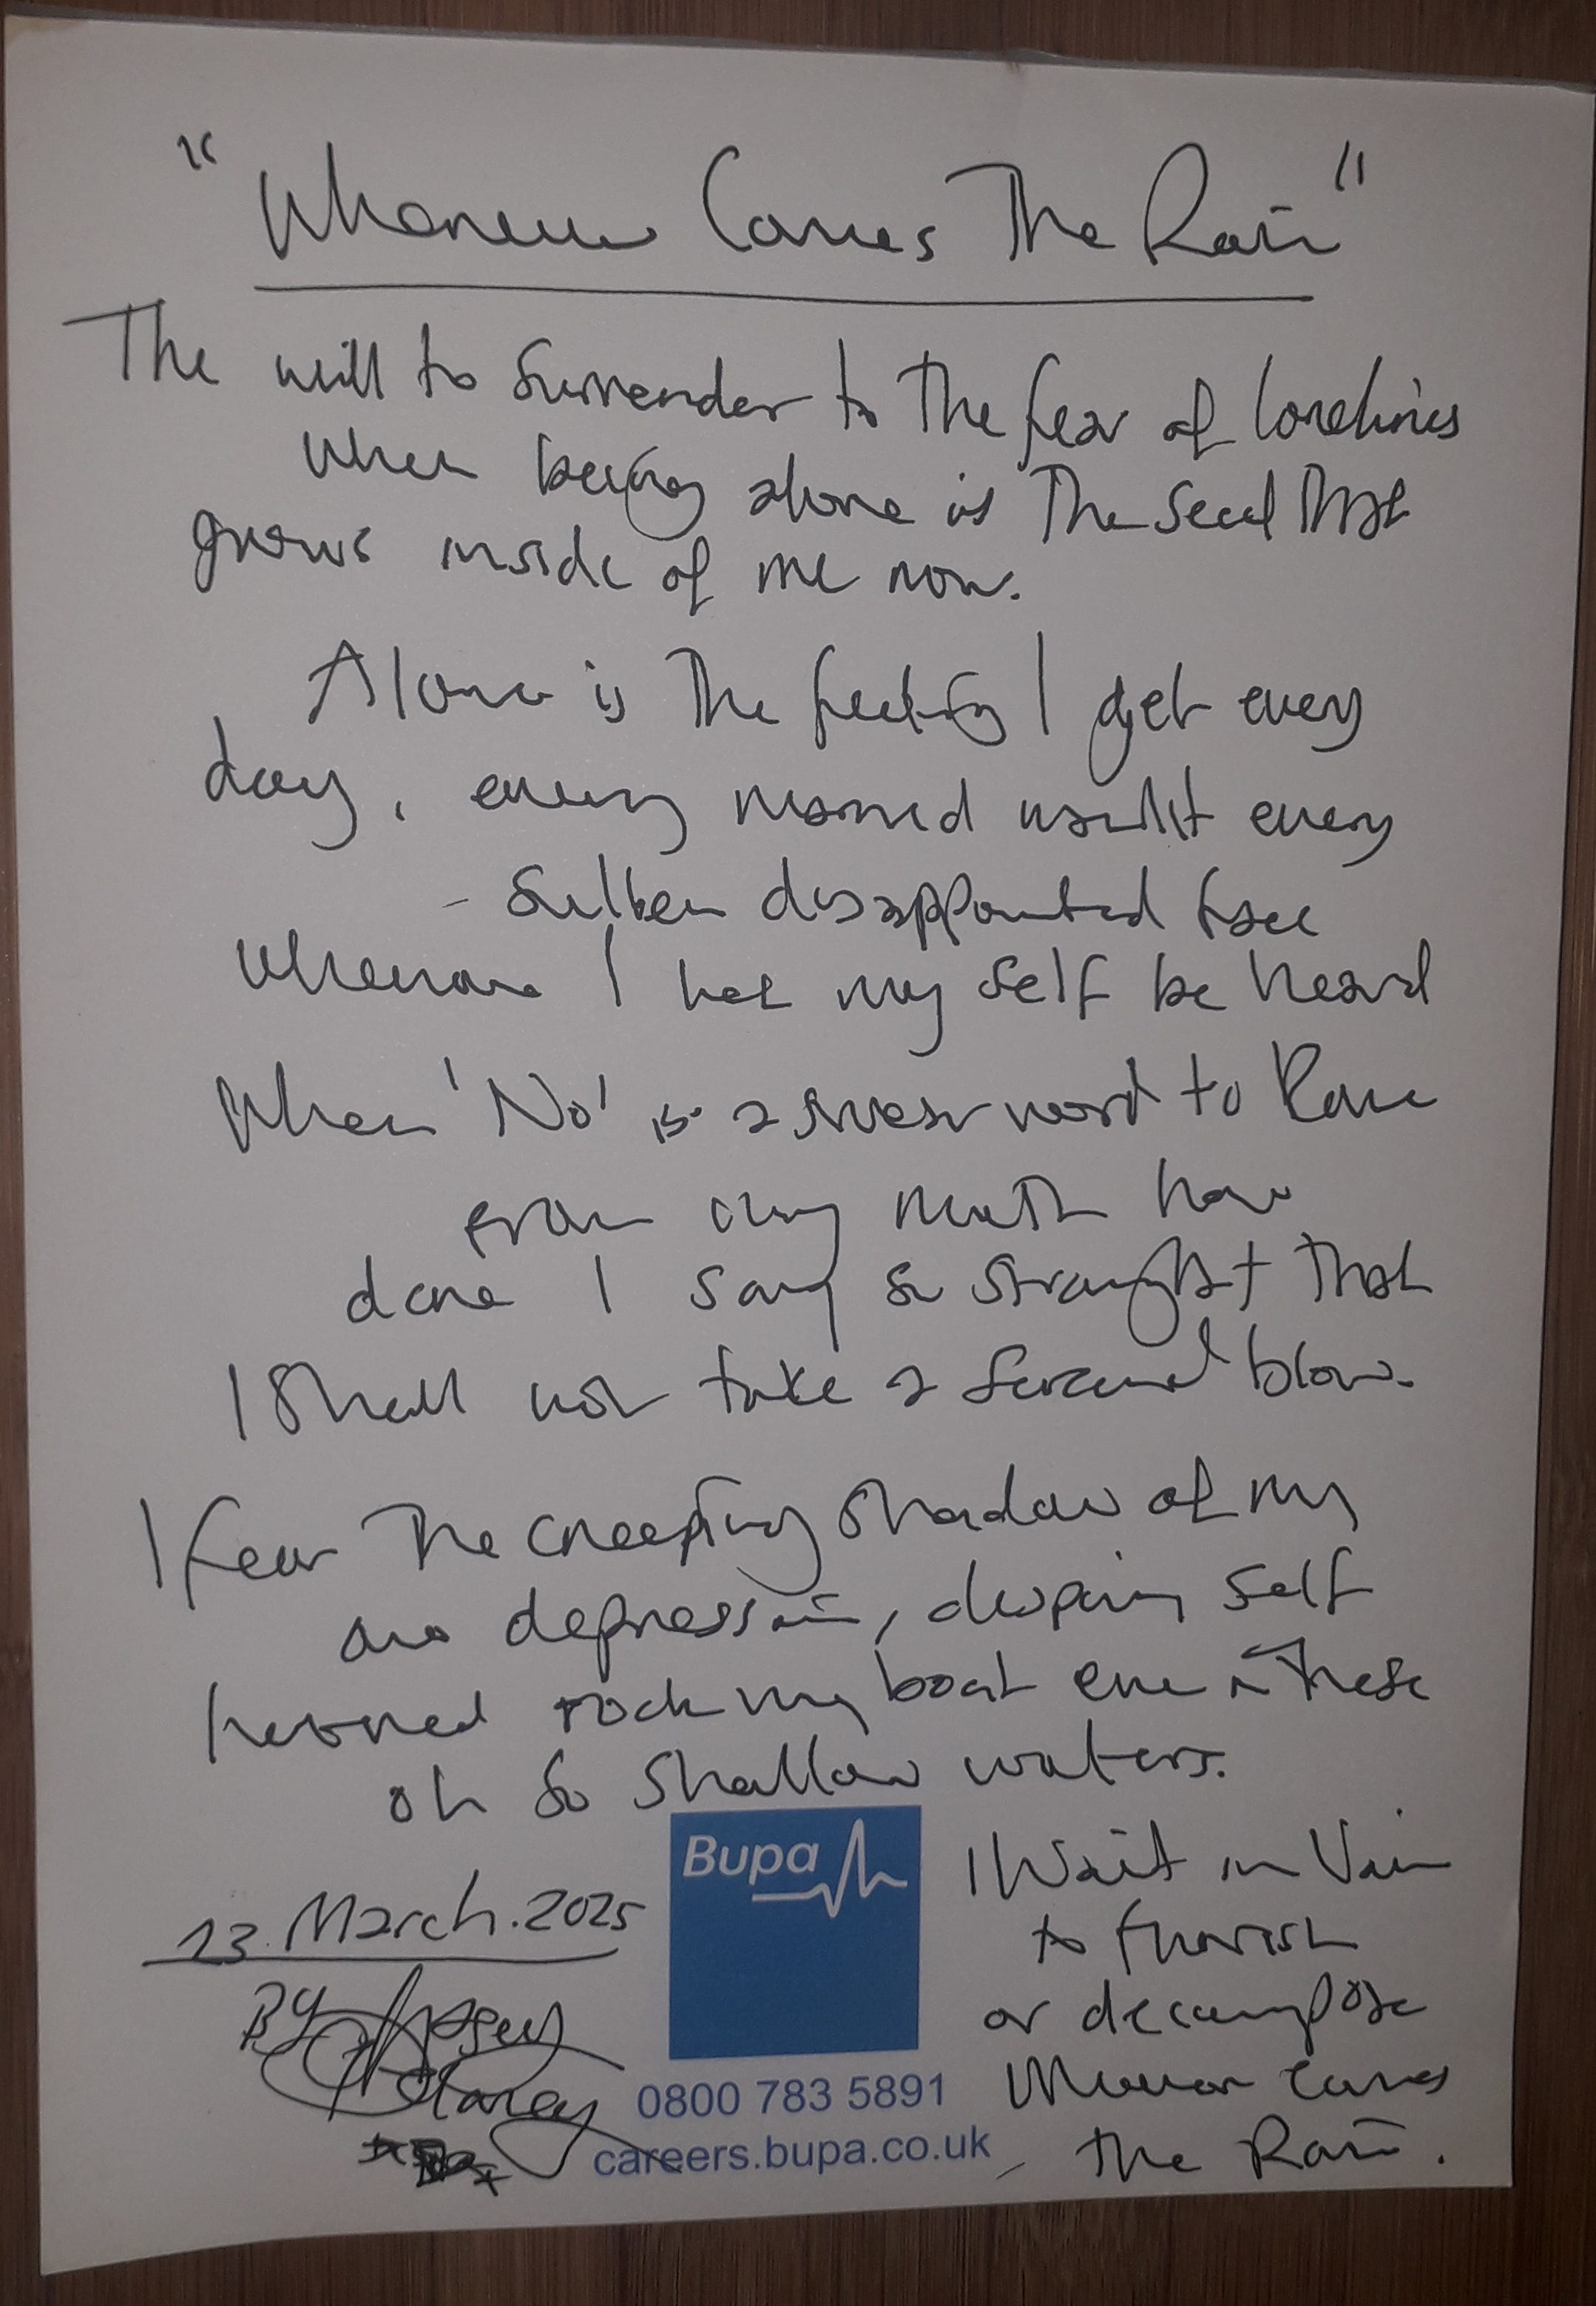 "Whenever Comes The Rain"
The will to surrender to the fear of loneliness
when being alone is the seed that
grows inside of me now.
Alone is the feeling I get every
day, every moment every
disappointed face
whenever I let my self be heard
When 'No' is a swear word to leave
from my mouth how
dare I say so straight that
I shall not take a second blow.
I fear the creeping shadow of my
own depression, self
hatred rock my boat even in these
oh so shallow waters.
Bupa
I Wait in Vain
to flourish
or decompose
Whenever comes
the Rain.
13 March. 2025
By
0800 783 5891
careers.bupa.co.uk